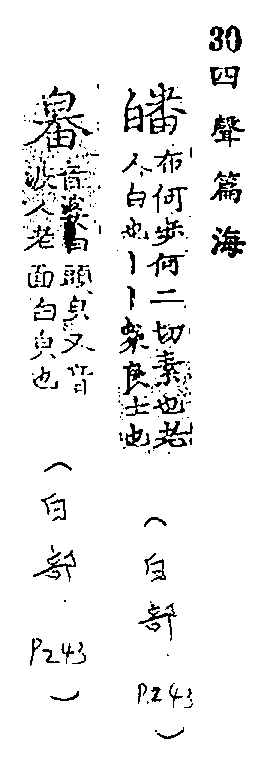 30四聲篇海
皤
布何步何二切素也老
人白也丨丨槃良士也
(白部.P.243)
音婆白頭皃又音
波人老面白皃也
(白部.P243)